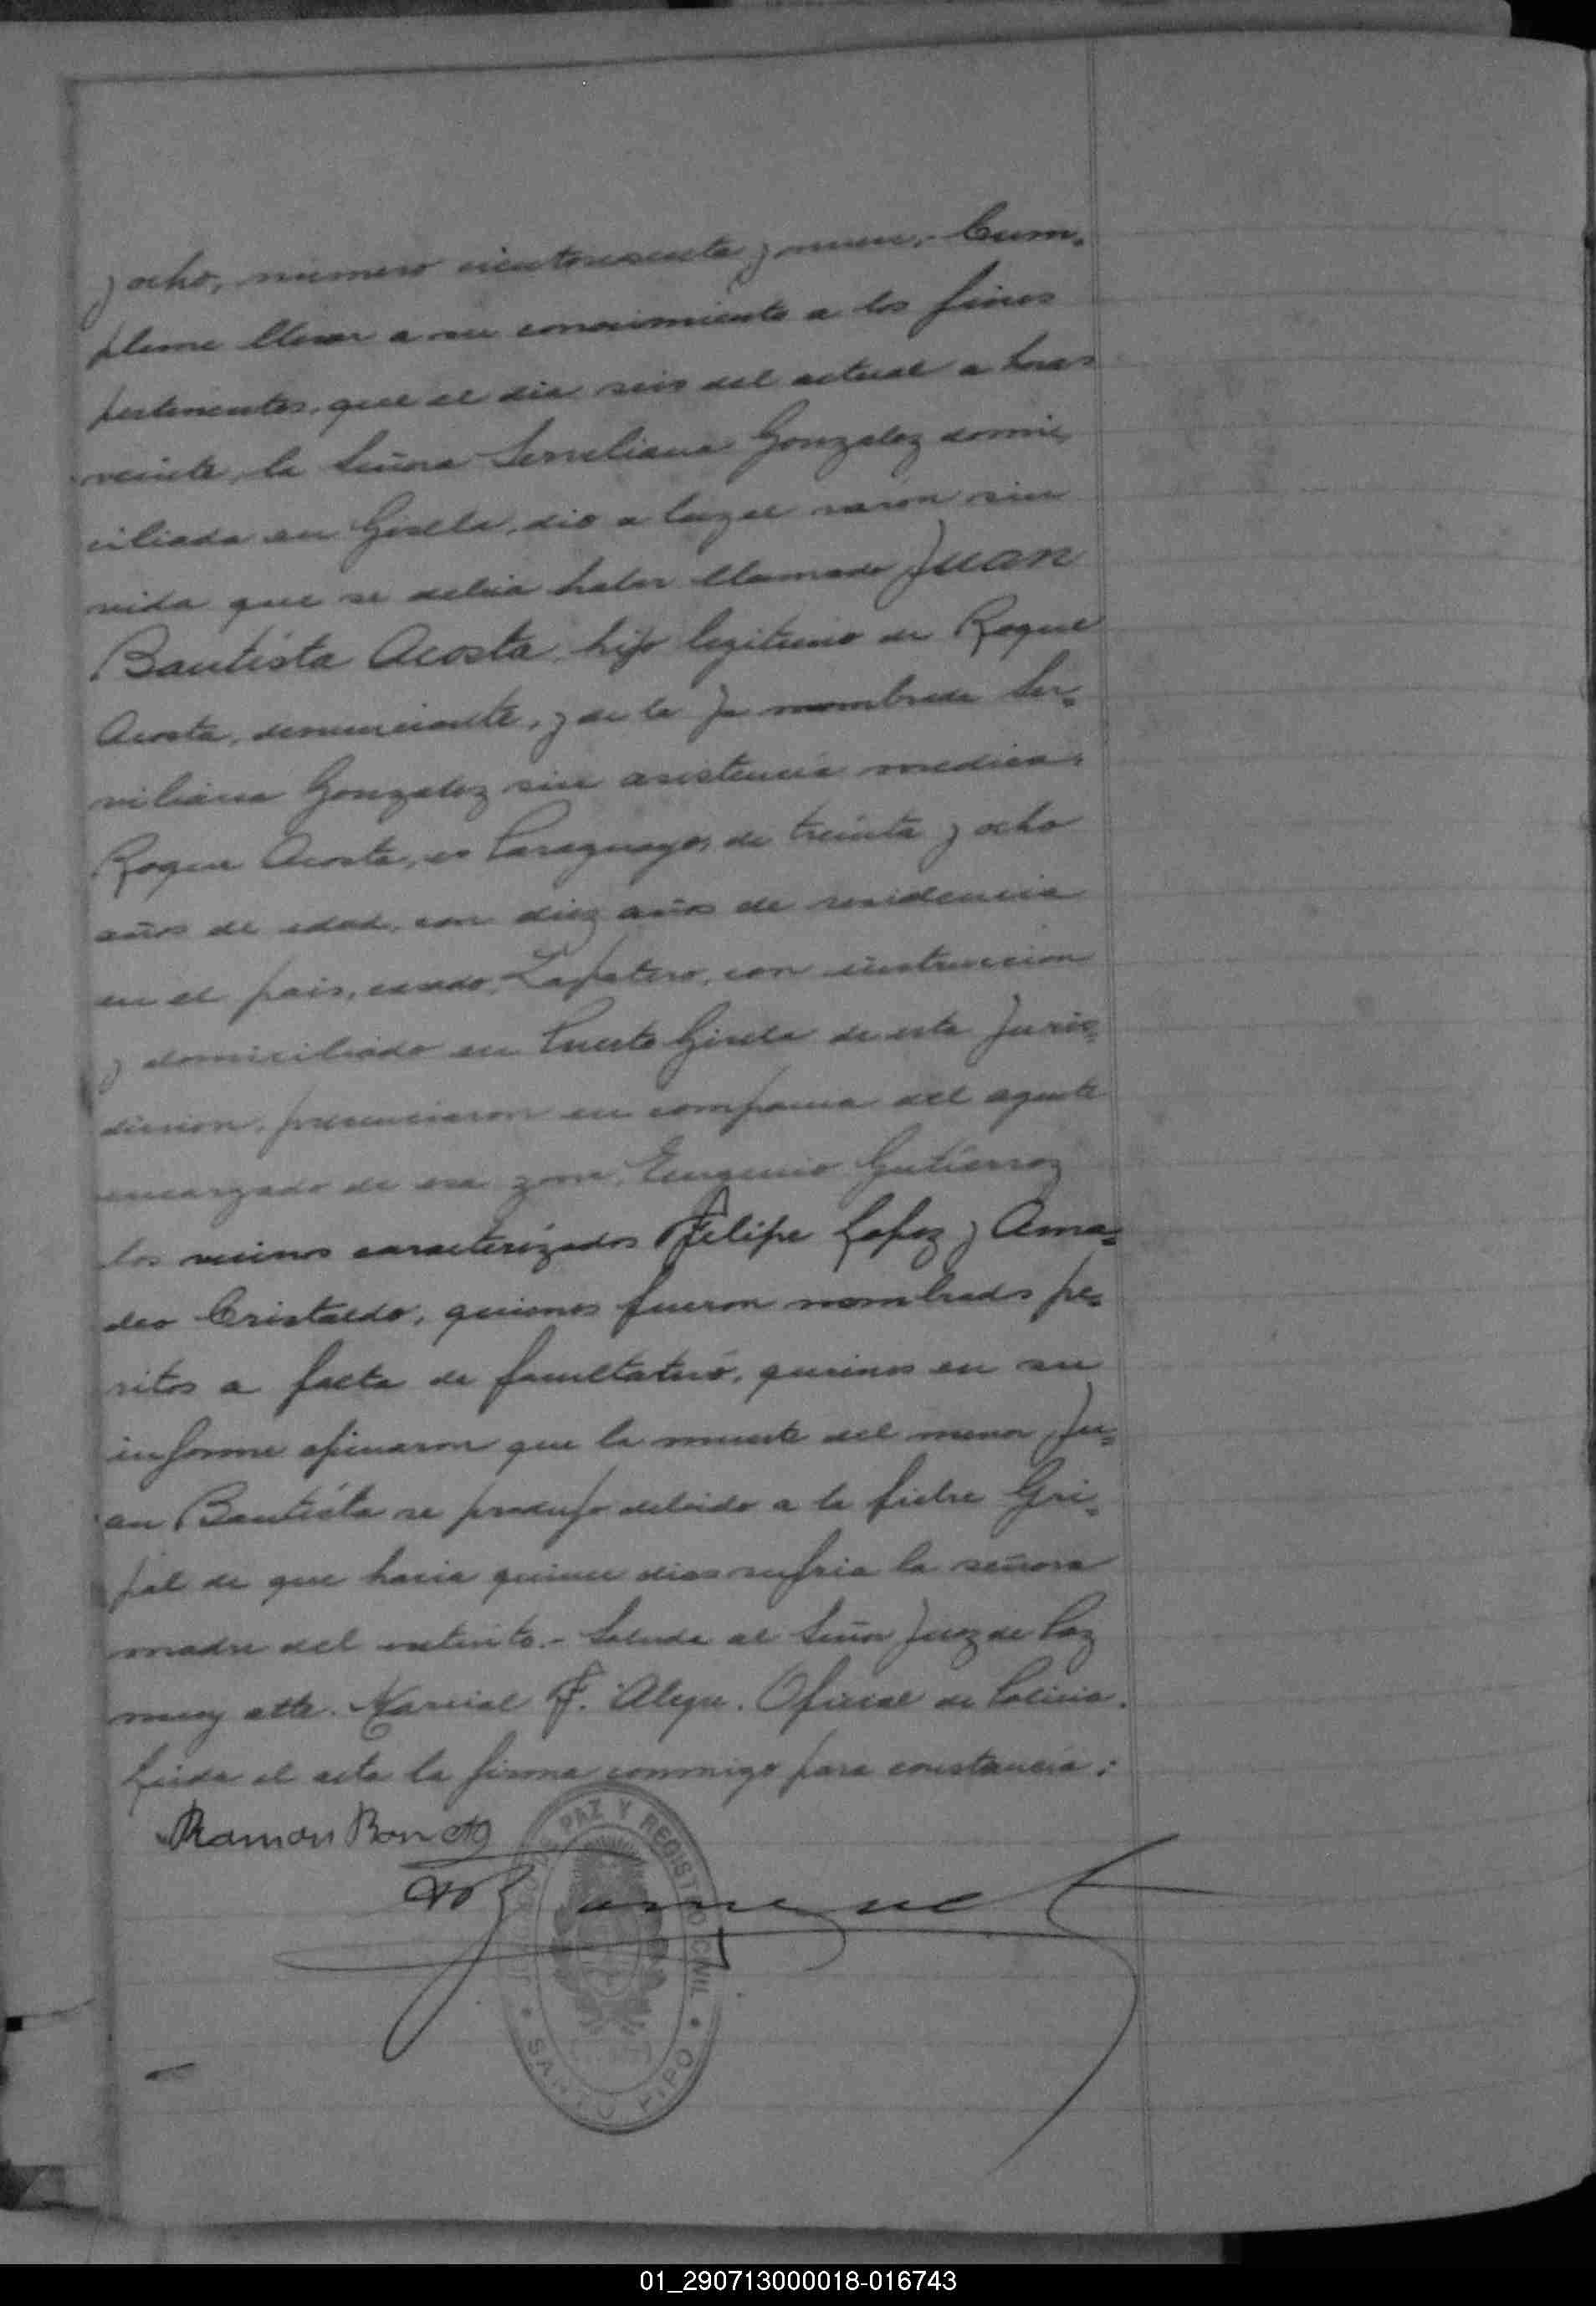 y ocho, numero cientosesenta y nueve.- Cum-
pleme llevar a su conocimiento a los fines
pertenentes, que el dia seis del actual a horas
veinte, la Señora Serviliana Gonzalez domi-
ciliada en Gisela, dio a luz el varon sin
vida que se debia haber llamado Juan
Bautista Acosta, hijo legitimo de Roque
Acosta, denunciante, y de la ya nombrada Ser-
viliana Gonzalez sin asistencia medica.
Roque Acosta, es Paraguayo, de treinta y ocho
años de edad, con diez años de residencia
en el pais, casado, Zapatero, con instruccion
y domiciliado en Puerto Gisela de esta Juris-
diccion, presenciaron en compania del agente
encargado de esa zona, Eugenio Gutierrez
los vecinos caracterizados Felipe Lopez y Ama-
deo Cristaldo, quienes fueron nombrados pe-
ritos a falta de facultativo, quienes en su
informe opinaron que la muerte del menor Ju-
an Bautista se produjo debido a la fiebre Gri-
pal de que hacia quince dias sufria la señora
madre del extinto.- Saluda al Señor Juez de Paz
muy atte. Marcial F. Alegre. Oficial de Policia.
Leida el acta la firma conmigo para constancia:
Ramon Bonet
PAZ Y REGISTRO CIVIL
SAN PIPO
01_290713000018-016743